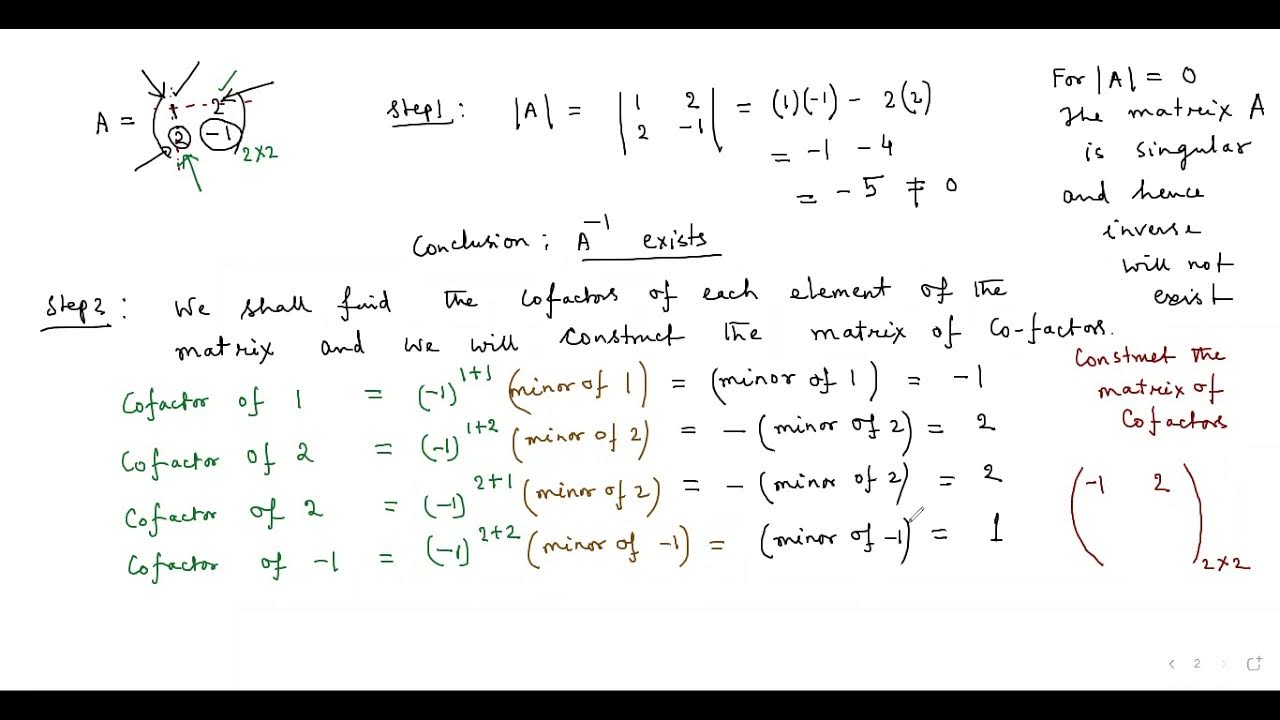 A = ( 1 2
2 -1 ) 2×2
Step1 : |A| = | 1 2
2 -1 | = (1)(-1) - 2(2)
= -1 - 4
= -5 ≠ 0
For |A| = 0
the matrix A
is singular
and hence
inverse
will not
exist
Conclusion : A^-1 exists
Step2 : We shall find the cofactors of each element of the
matrix and we will construct the matrix of Co-factors.
Cofactor of 1 = (-1)^1+1 (minor of 1) = (minor of 1) = -1
Cofactor of 2 = (-1)^1+2 (minor of 2) = -(minor of 2) = 2
Cofactor of 2 = (-1)^2+1 (minor of 2) = -(minor of 2) = 2
Cofactor of -1 = (-1)^2+2 (minor of -1) = (minor of -1) = 1
Construct the
matrix of
Cofactors
( -1 2
) 2×2
2